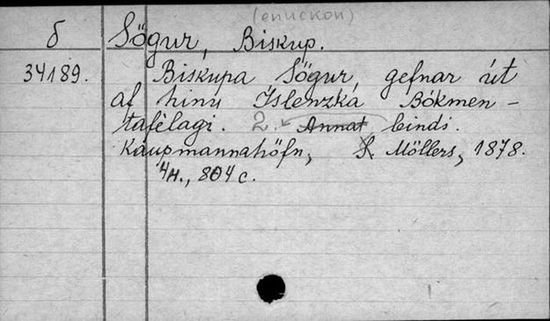 (епископ)
б Sögur, Biskup.
34189. Biskupa Sögur, gefnar út
af hinu Islenzka Bókmen-
tafélagi. 2. Annat bindi.
Kaupmannahöfn, S. Möllers, 1878.
4н., 804 с.